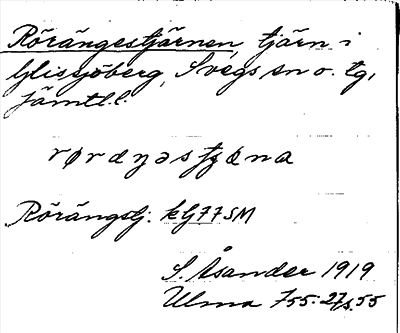 Rörängestjärnen, tjärn i
Glissjöberg, Svegs sn o. tg,
Jämtl. l.
rørɑŋəstjæna
Rörängstj: kLJ77SM
S. Åsander 1919
Ulma 755: 27/5.55